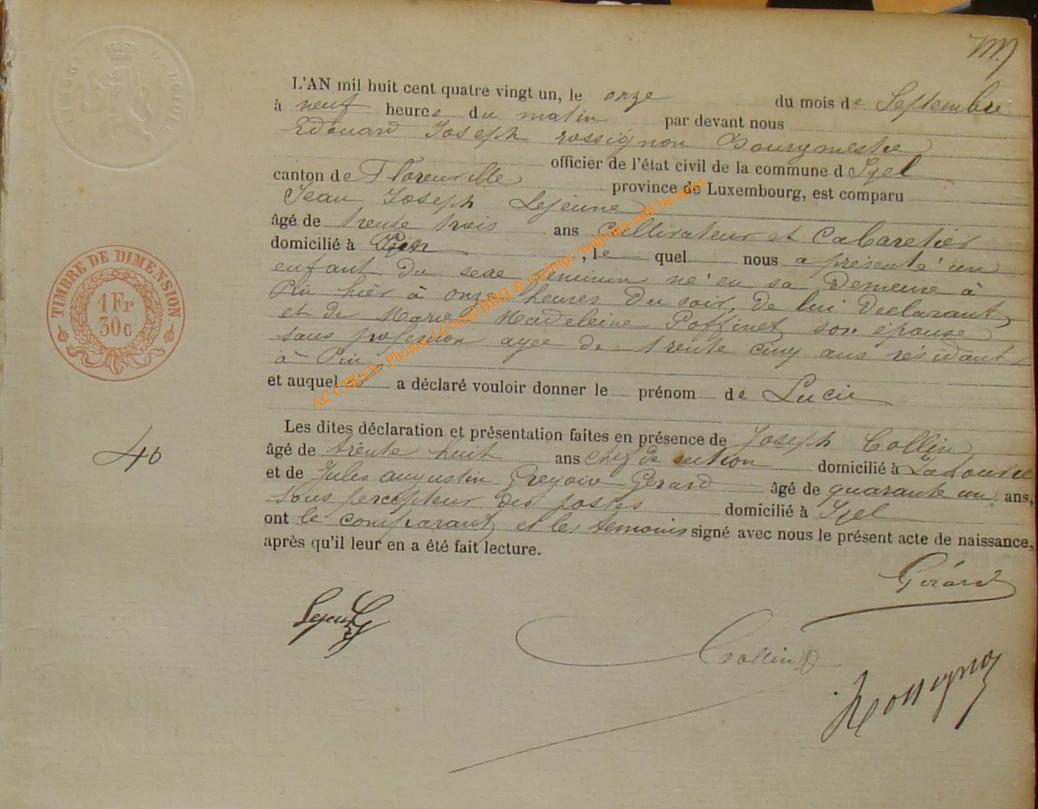 L'AN mil huit cent quatre vingt un, le onze du mois de Septembre
à neuf heures du matin par devant nous
Edouard Joseph rossignon Bourgmestre
officier de l'état civil de la commune d Izel
canton de Florenville province de Luxembourg, est comparu
Jean Joseph Lejeune
âgé de trente trois ans Cultivateur et Cabaretier
domicilié à Pin, le quel nous a présenté un
enfant du sexe féminin né en sa demeure à
Pin hier à onze heures du soir, de lui Déclarant
et de Marie Madeleine Poffinet son épouse
sans profession agée de trente cinq ans résidant
à Pin
et auquel il a déclaré vouloir donner le prénom de Lucie
Les dites déclaration et présentation faites en présence de Joseph Collin
âgé de trente huit ans chef de section domicilié à
et de Jules augustin Gregoire Gerard âgé de quarante un ans,
sous percepteur des postes domicilié à Izel
ont le comparant et les temoins signé avec nous le présent acte de naissance,
après qu'il leur en a été fait lecture.
Gérard
Lejeune
Collin
Rossignon
TIMBRE DE DIMENSION
1 Fr
30 c
40